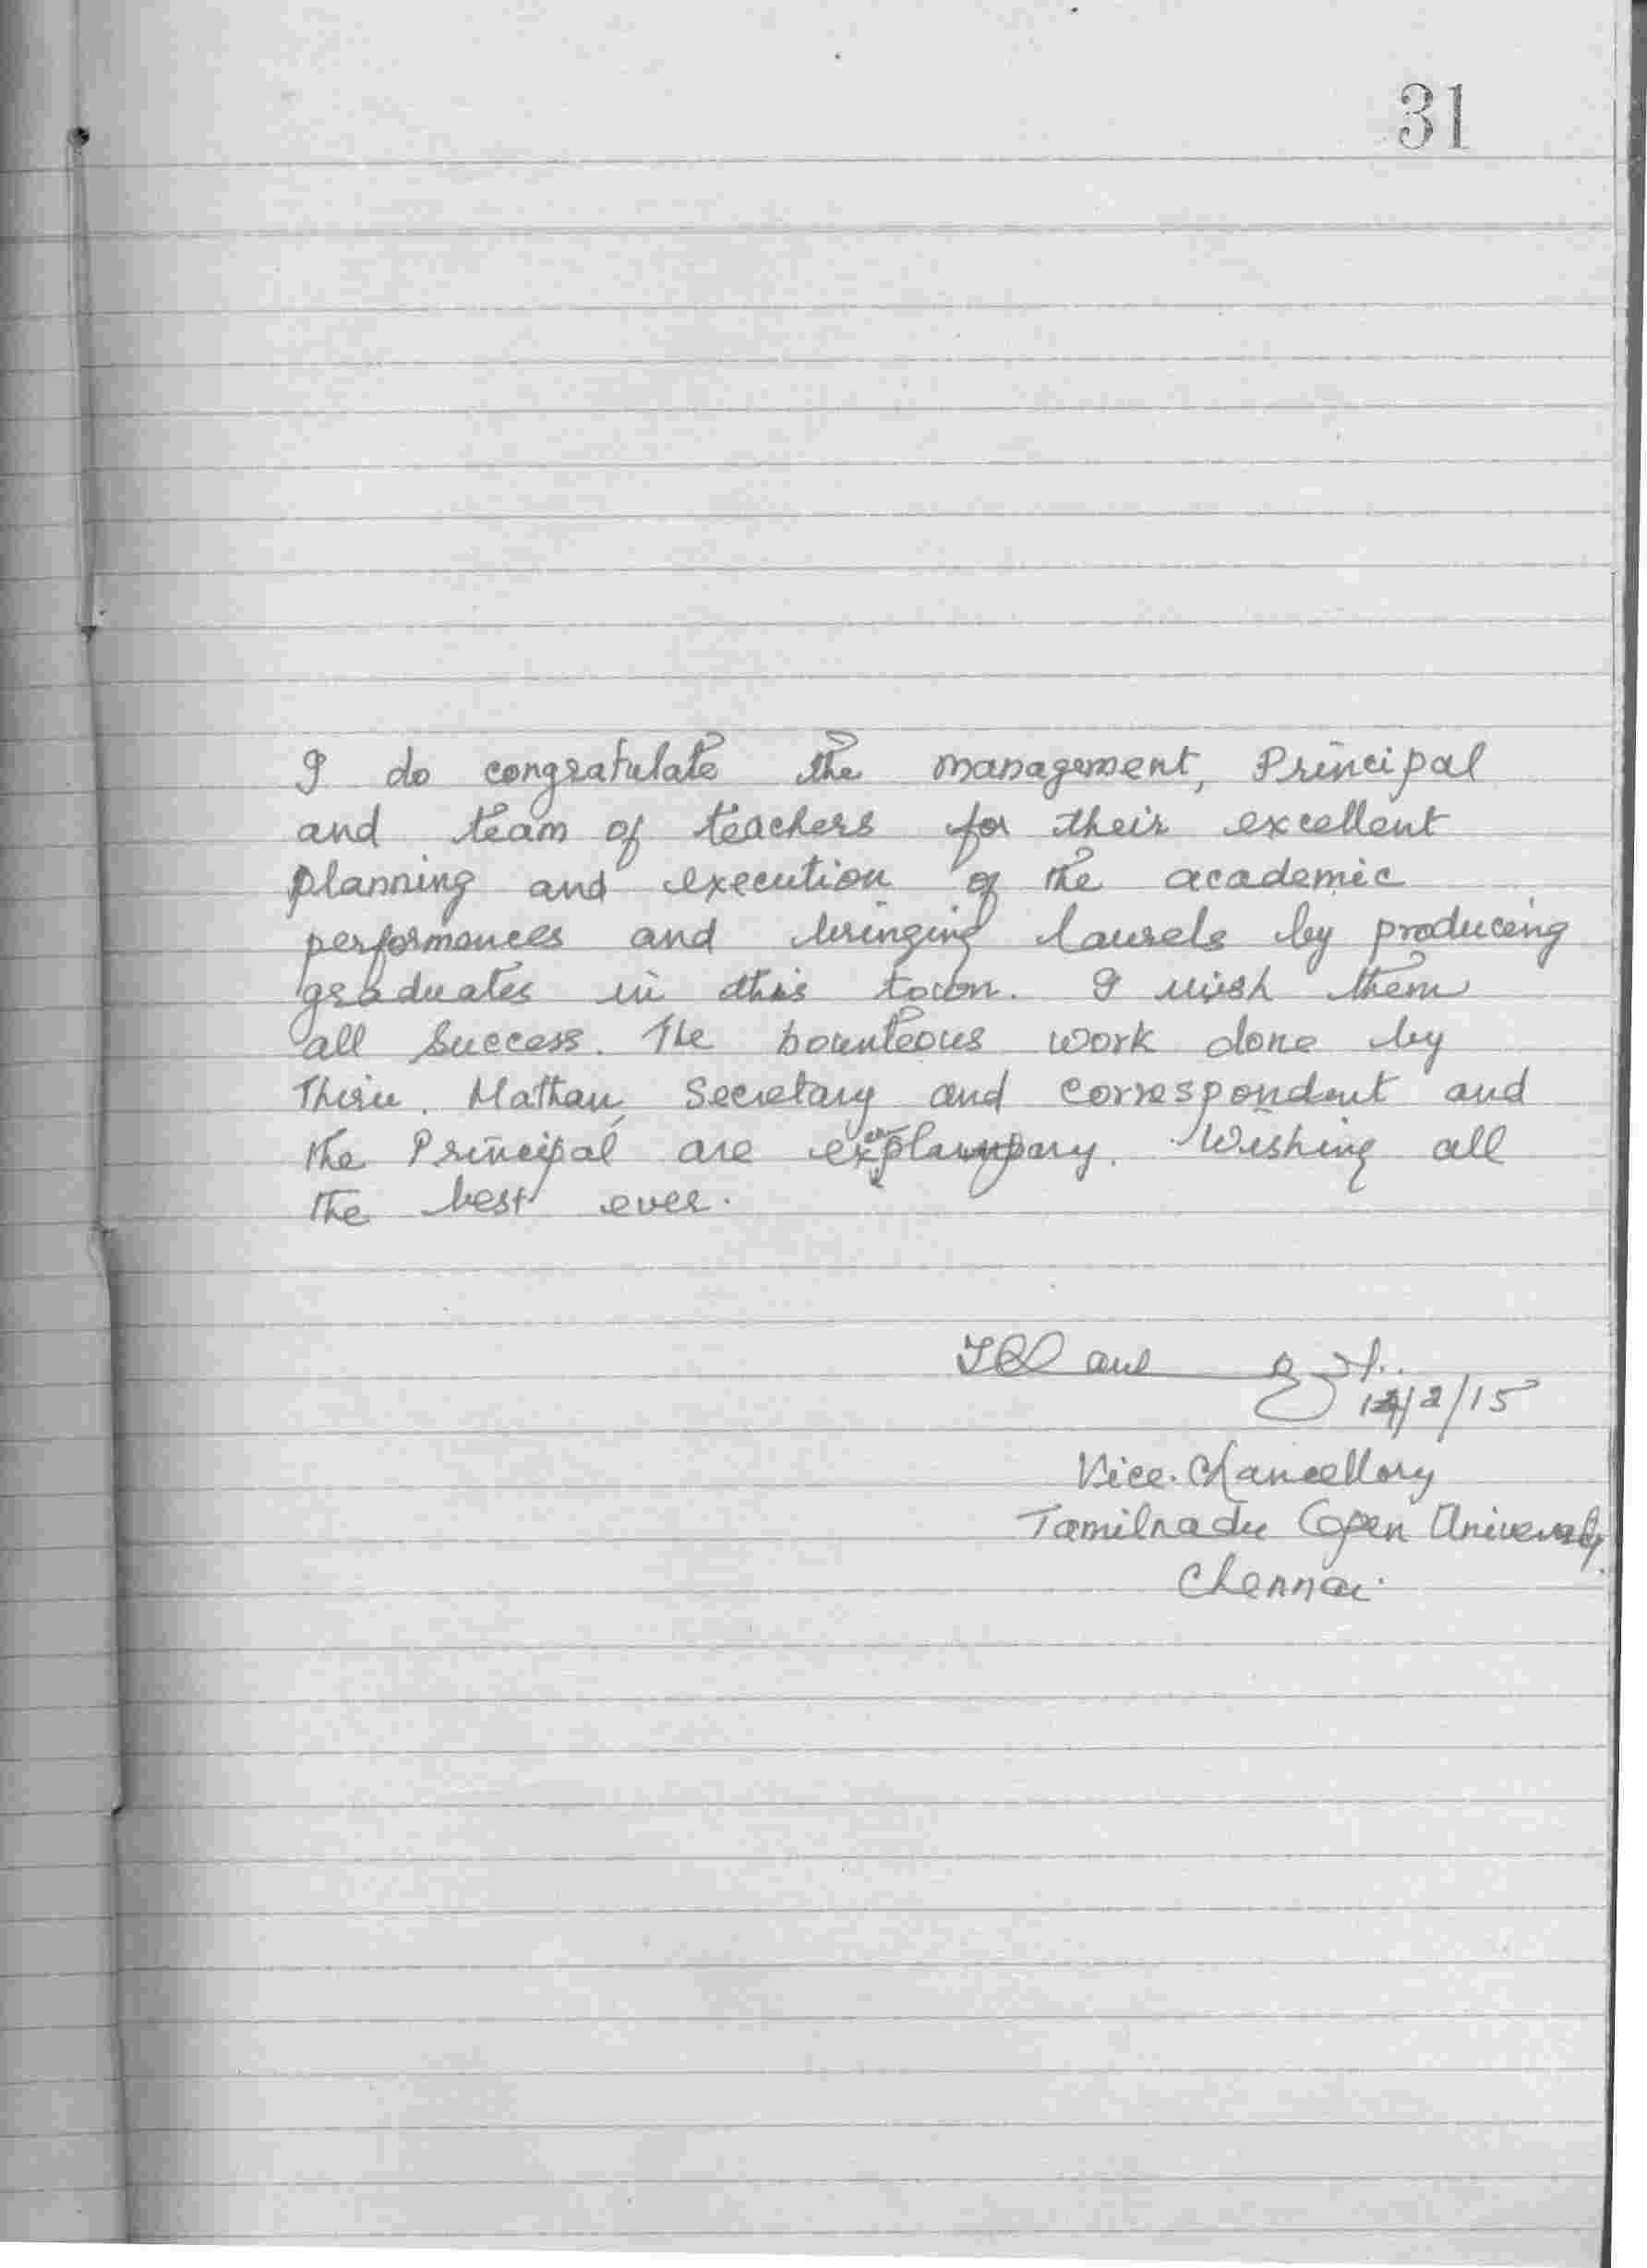 31
I do congratulate the management, Principal
and team of teachers for their excellent
planning and execution of the academic
performances and bringing laurels by producing
graduates in this town. I wish them
all success. The bounteous work done by
Thiru. Mathan, Secretary and Correspondent and
the Principal are . Wishing all
the best ever.
/2/15
Vice-Chancellor
Tamilnadu Open University
Chennai.